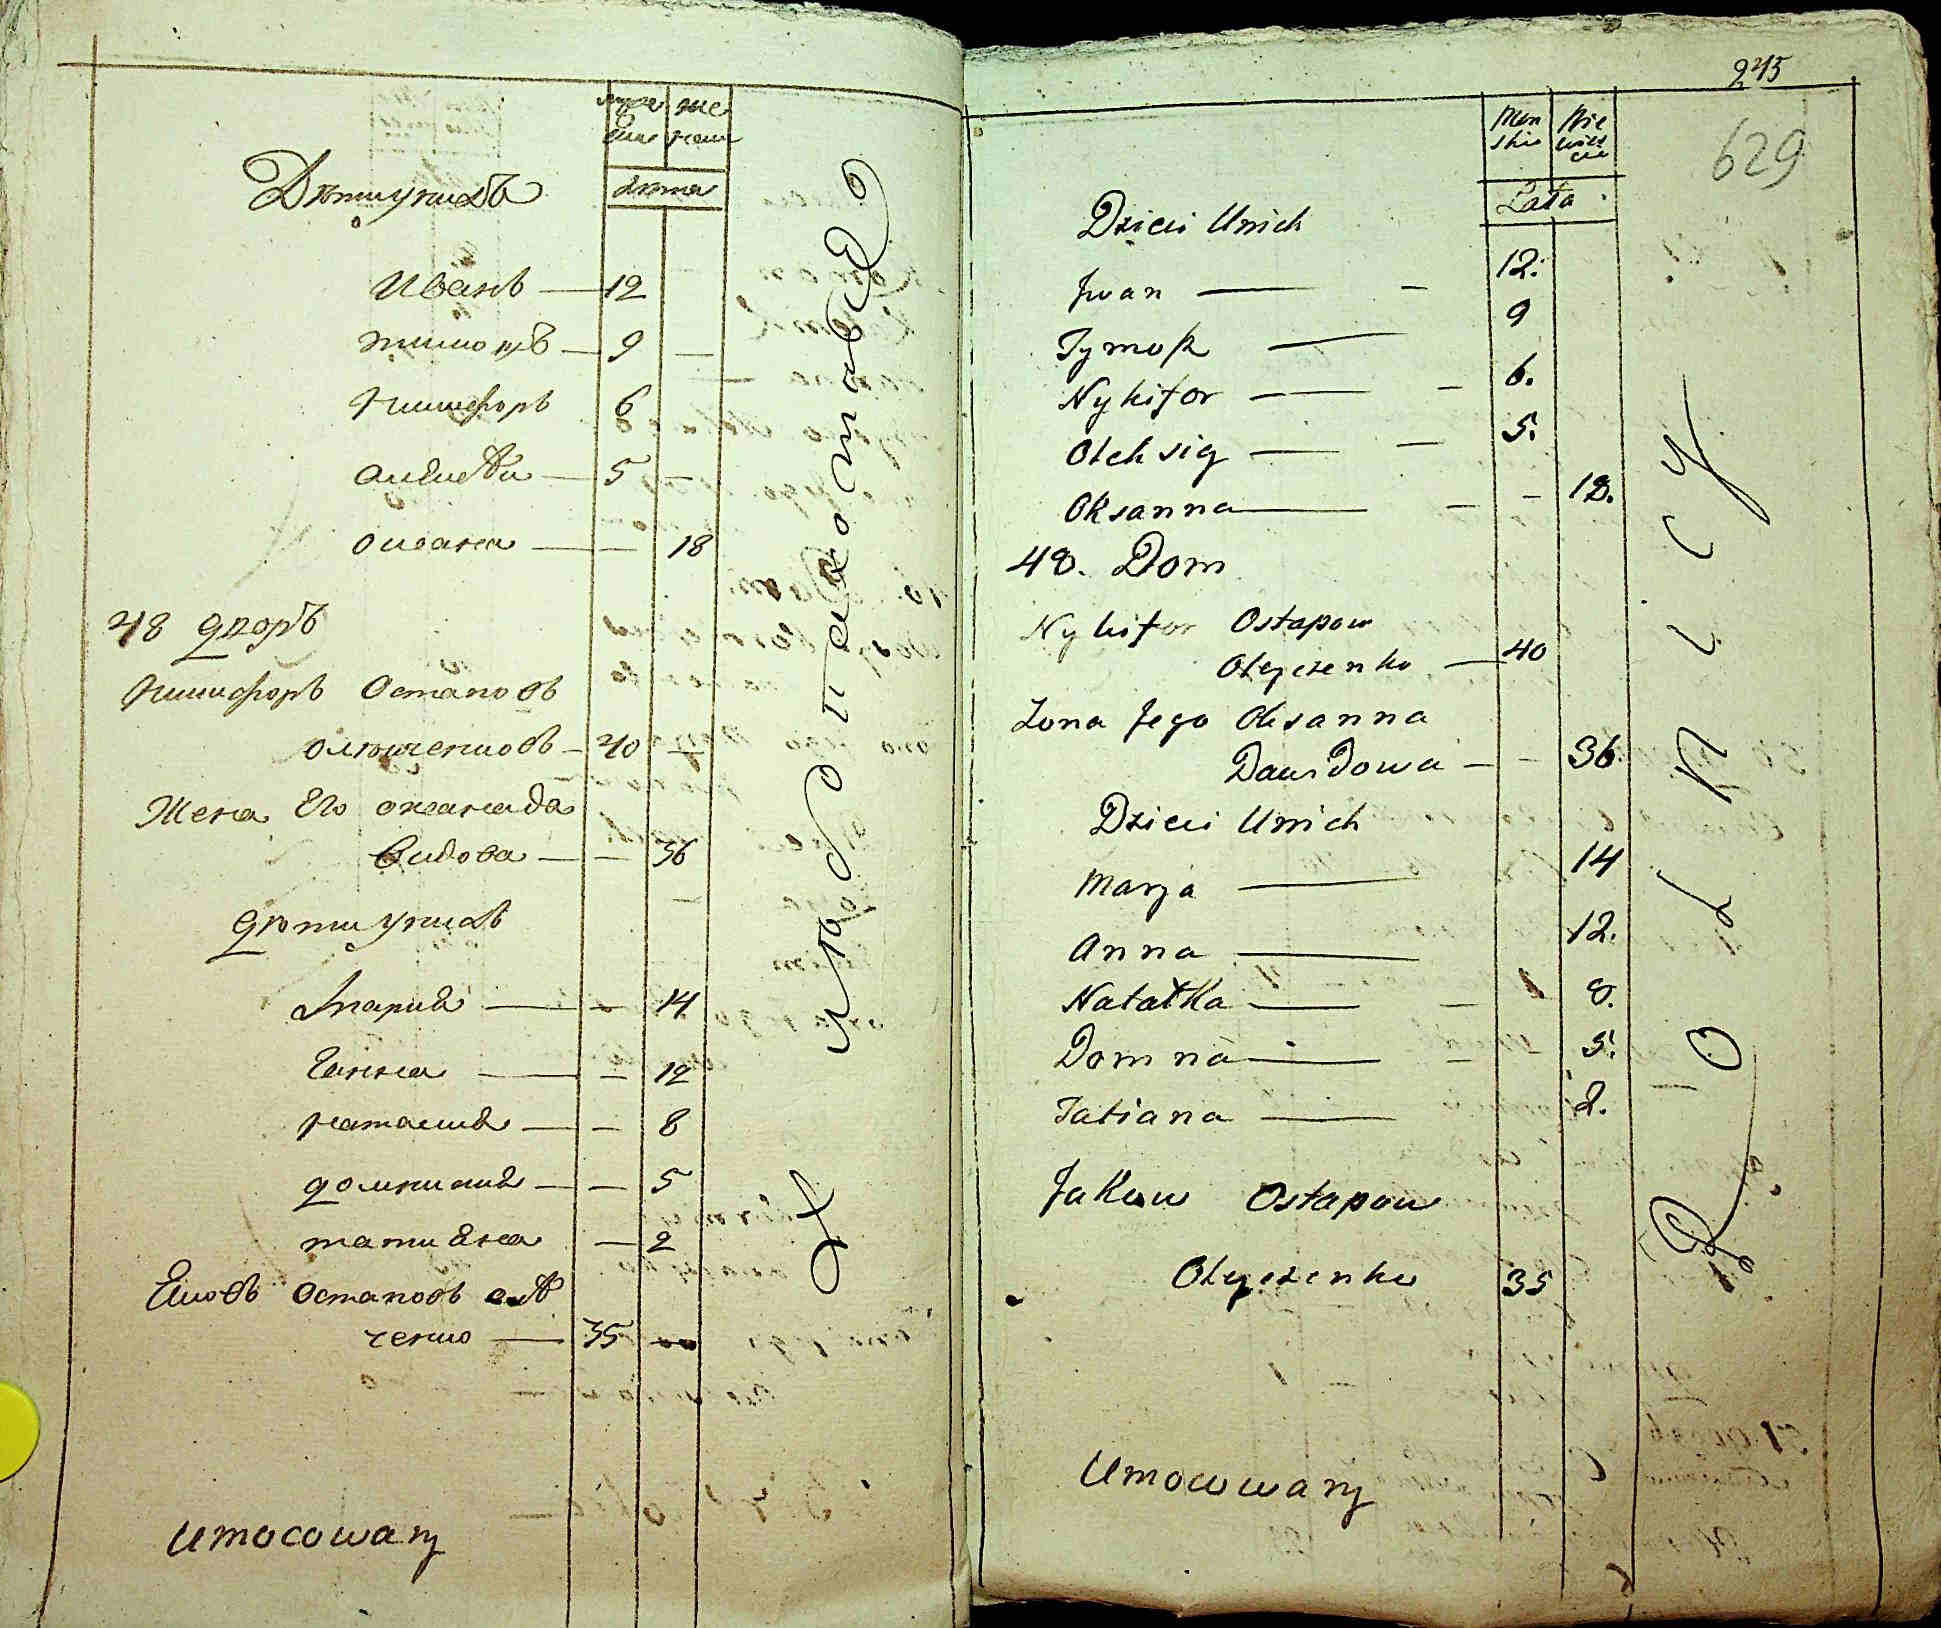 муже
ския
же
нски
лѣта
Дѣти у нихъ
Иванъ — 12
тимошъ — 9 —
Никифоръ 6
алексѣй — 5 —
оксана — — 18
48 дворъ
Никифоръ Остаповъ
олѣйченковъ — 40 —
Жена Его оксана да
видова — — 36
дѣти у нихъ
Мария — — 14
Ганна — — 12
наталия — — 8
домникия — — 5
татияна — 2
Яковъ Остаповъ олѣй
ченко — 35 —
Umocowany
245
629
Men
skie
Nie
wies
cie
Lata
Dzieci Unich
Jwan — — 12.
Tymosz — 9
Nykifor — — 6.
Oleksiy — — 5.
Oksanna — — — 18.
48. Dom
Nykifor Ostapow
Oleyczenko — 40
Zona Jego Oksanna
Dawidowa — — 36
Dzieci Unich
Marya — 14
Anna — 12.
Natałka — — 8.
Domna — — 5.
Tatiana — 2.
Jakow Ostapow
Oleyczenko 35
Umocowany